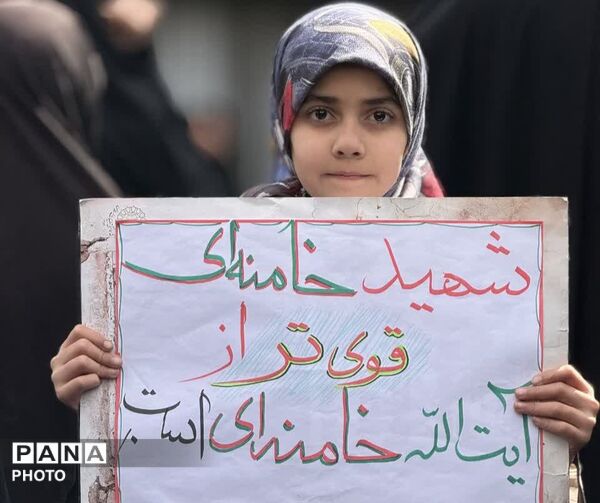 شهید خامنه‌ای
قوی تر از
آیت الله خامنه‌ای است
PANA
PHOTO